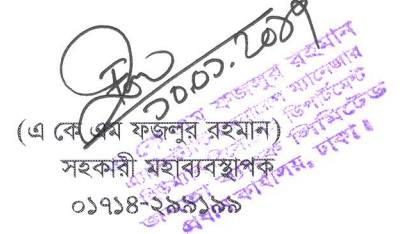 ১০.০১.২০১৯
(এ কে এম ফজলুর রহমান)
সহকারী মহাব্যবস্থাপক
০১৭১৪-২৯৯১৯৯
এ কে এম ফজলুর রহমান
ম্যানেজার
ডিপার্টমেন্ট
লিমিটেড
প্রধান কার্যালয়, ঢাকা।